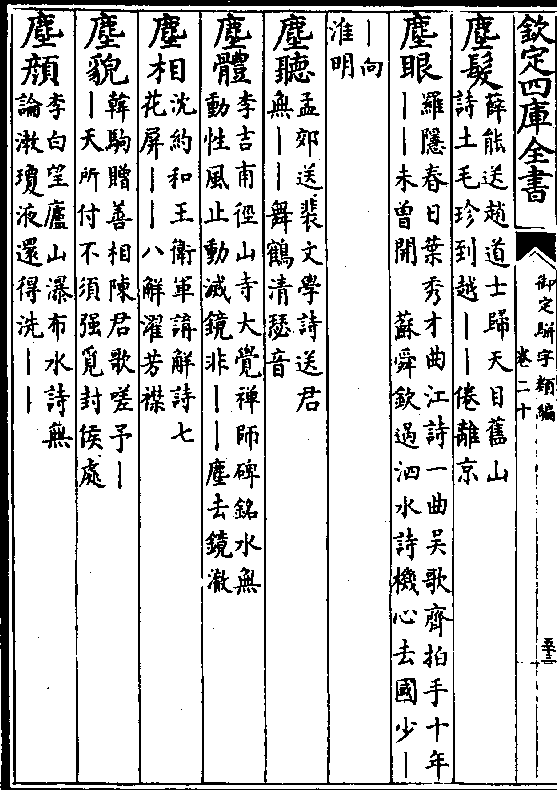 欽定四庫全書
御定駢字類編
卷二十
塵髮
薛能送趙道士歸天目舊山
詩土毛珍到越丨丨倦離京
塵眼
羅隱春日葉秀才曲江詩一曲吳歌齊拍手十年
丨丨未曾開　蘇舜欽過泗水詩機心去國少丨
丨向
淮明
塵聽
孟郊送裴文學詩送君
無丨丨舞鶴清瑟音
塵體
李吉甫徑山寺大覺禪師碑銘水無
動性風止動滅鏡非丨丨塵去鏡澈
塵相
沈約和王衛軍講解詩七
花屏丨丨八解濯芳襟
塵貌
韓駒贈善相陳君歌嗟予丨
丨天所付不須强覓封侯處
塵顔
李白望廬山瀑布水詩無
論漱瓊液還得洗丨丨